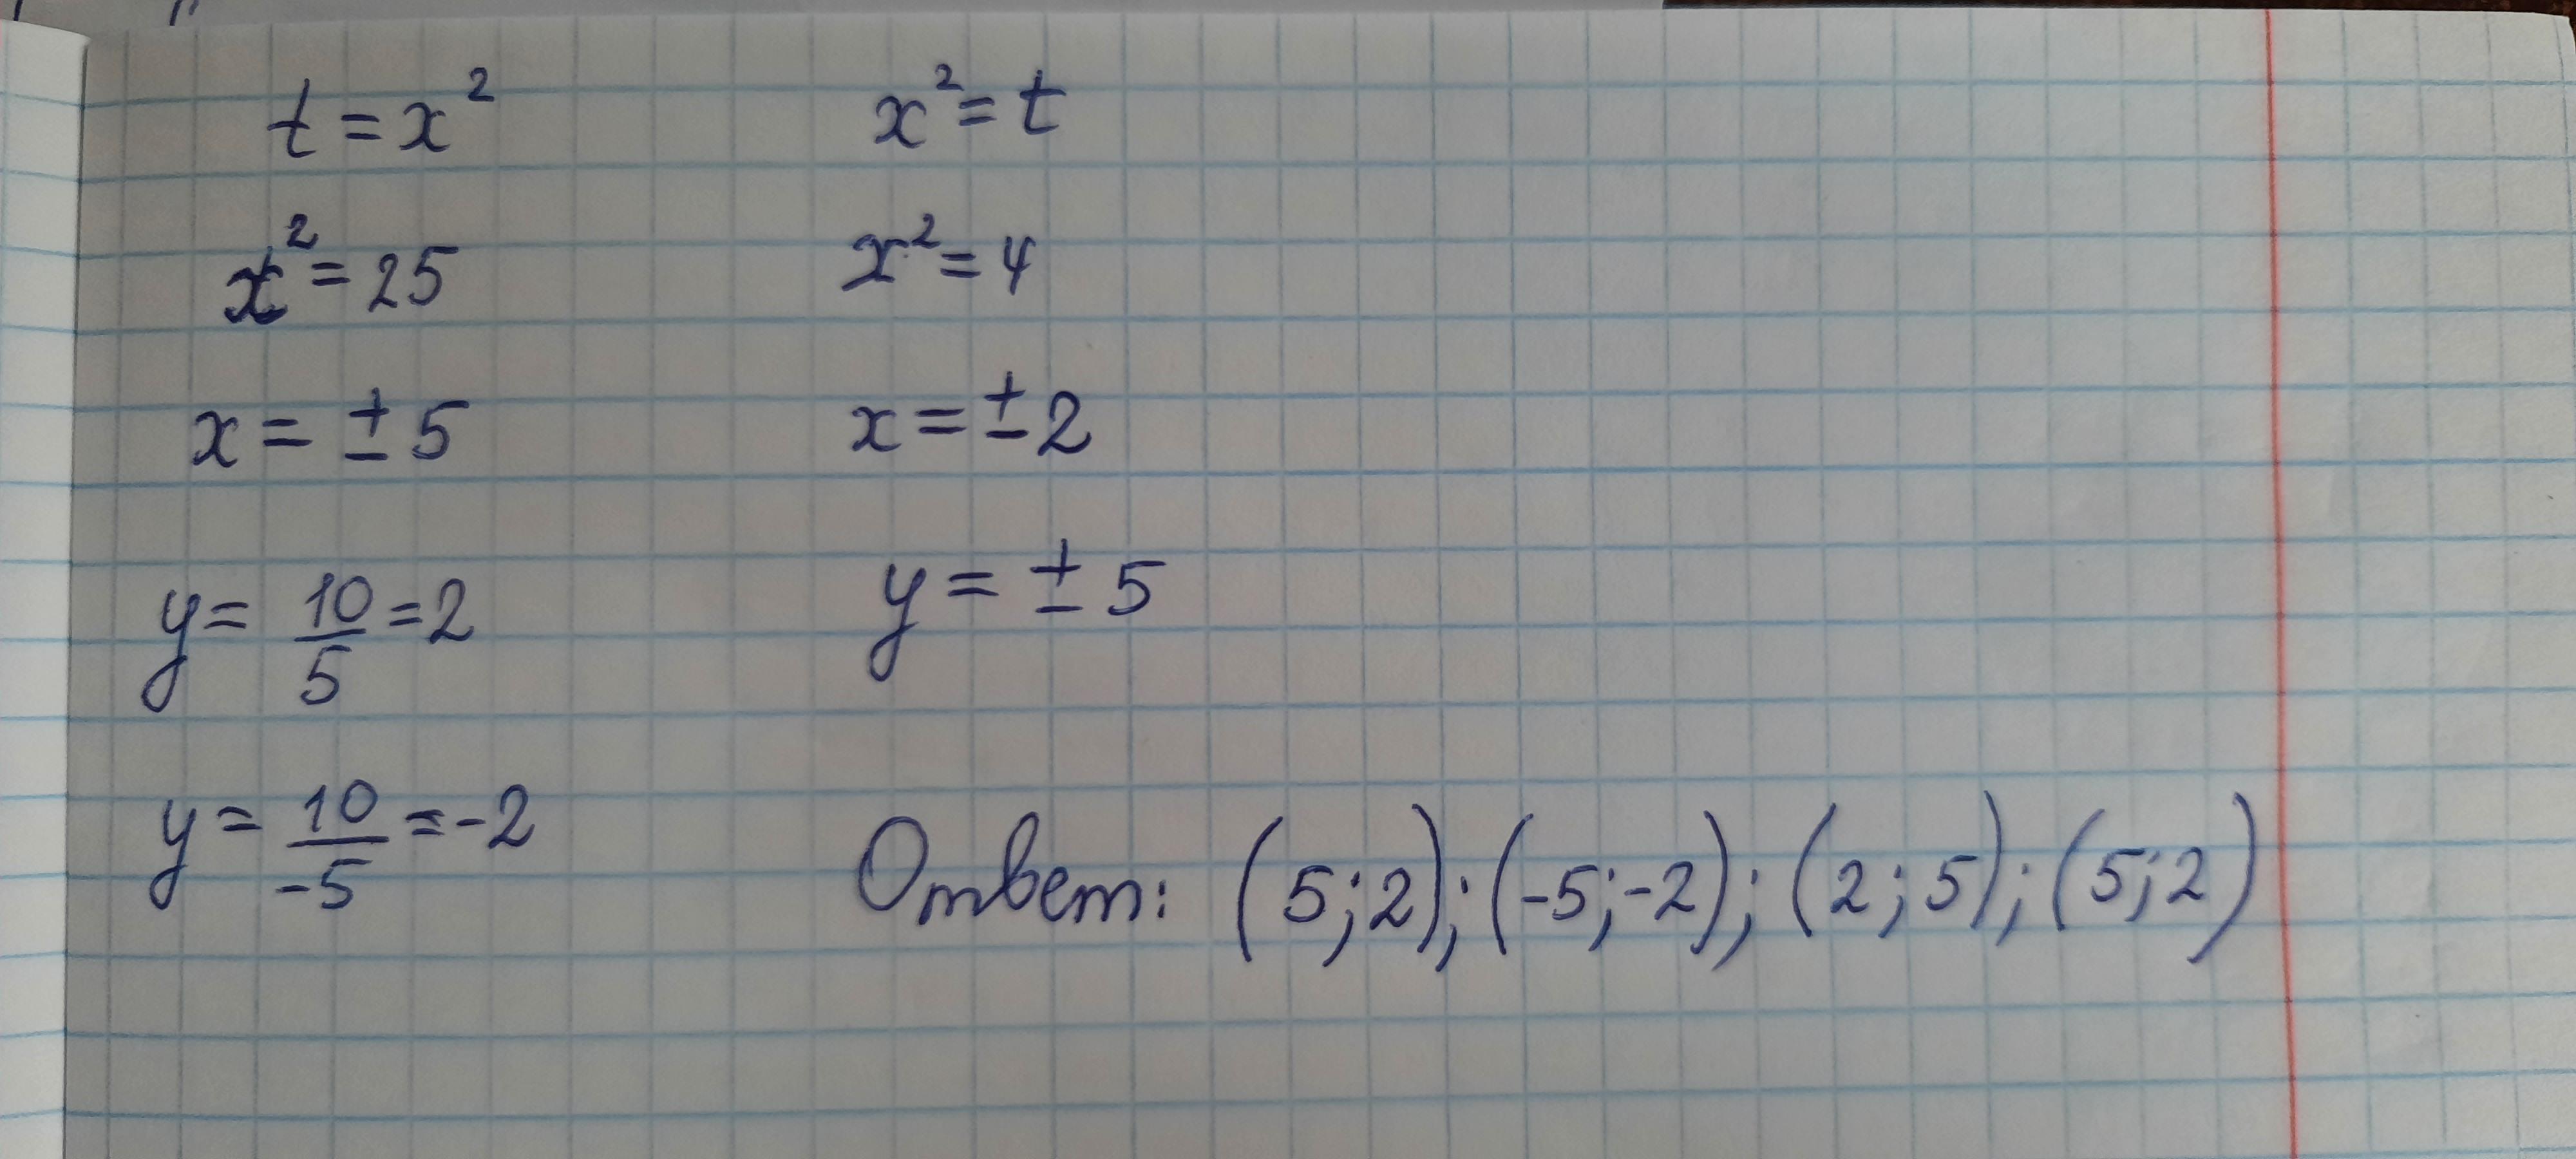 t = x²
x² = 25
x = ± 5
y = 10/5 = 2
y = 10/-5 = -2
x² = t
x² = 4
x = ± 2
y = ± 5
Ответ: (5;2);(-5;-2);(2;5);(5;2)